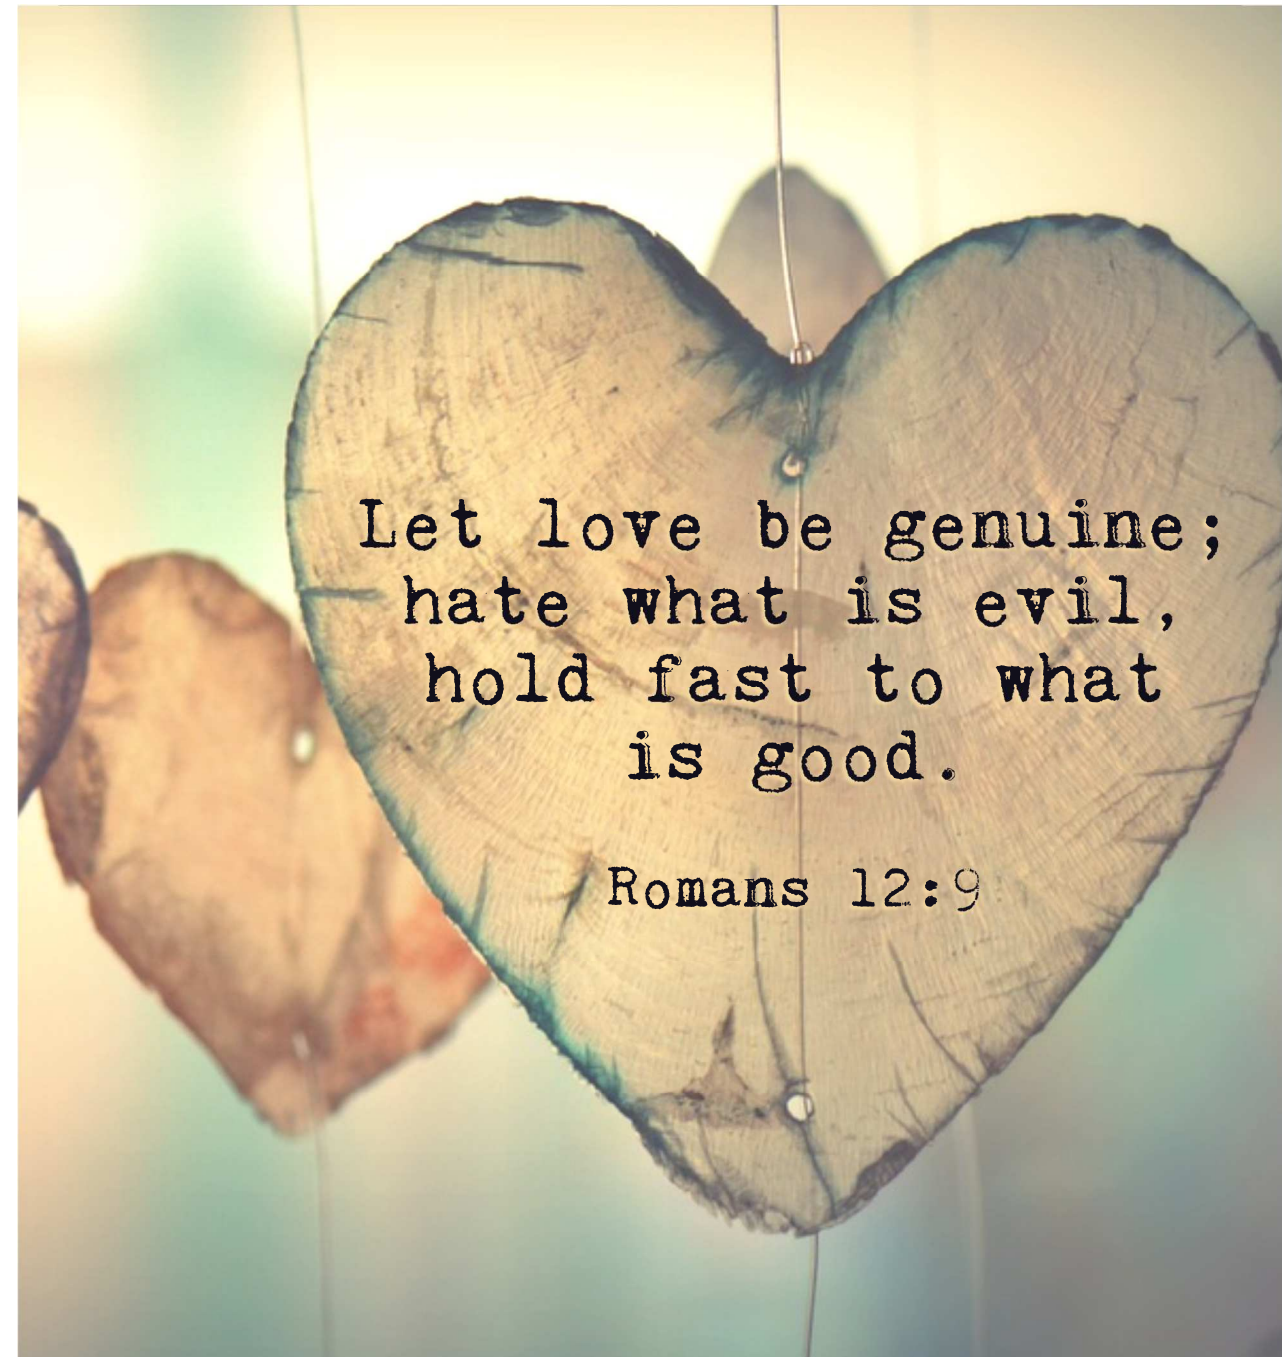 Let love be genuine;
hate what is evil,
hold fast to what
is good.
Romans 12:9